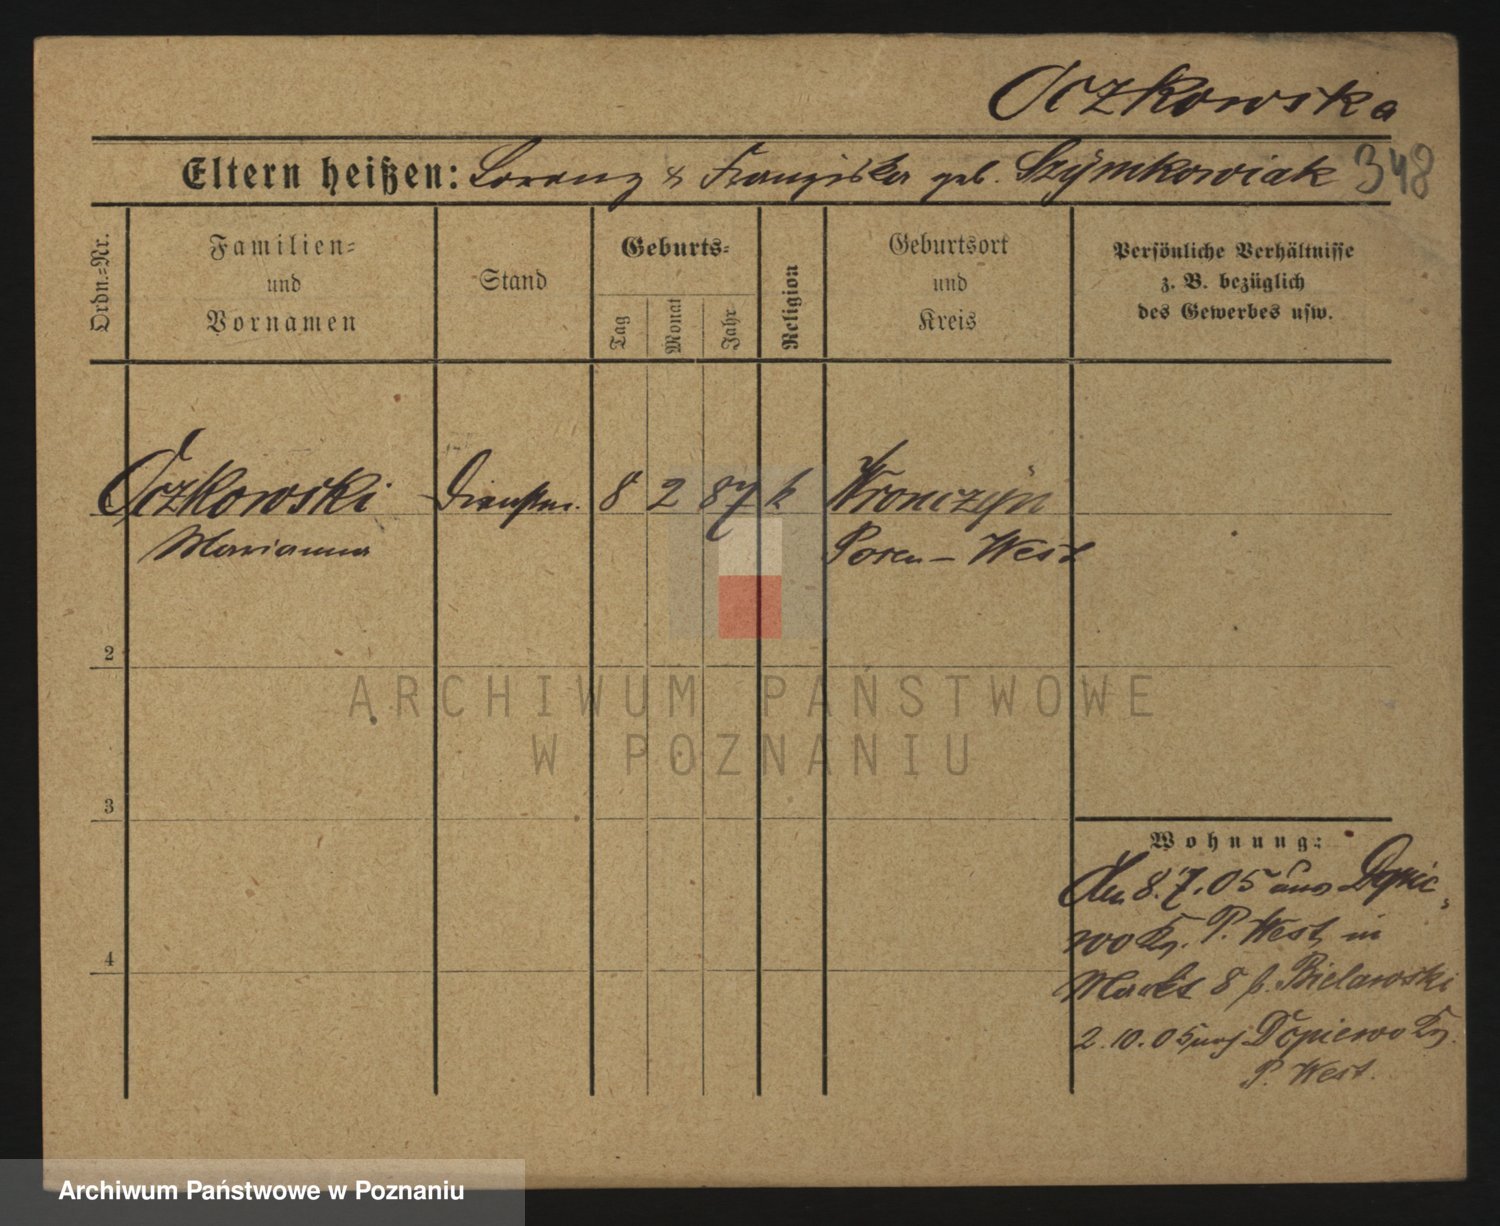 Oczkowska
Eltern heißen: Lorenz & Franziska geb. Szymkowiak 348
Ordn.=Nr.
Familien=
und
Vornamen
Stand
Geburts=
Tag
Monat
Jahr
Religion
Geburtsort
und
Kreis
Persönliche Verhältnisse
z. B. bezüglich
des Gewerbes usw.
Oczkowski Dienstm. 8 2 87 k Wronczyn
Marianna Posen - West
2
3
4
Wohnung:
den 8.7.05 aus Dopie-
wo Kr. P. West in
Markt 8 b. Bielawski
2.10.05 nach Dopiewo Kr.
P. West.
ARCHIWUM PAŃSTWOWE
W POZNANIU
Archiwum Państwowe w Poznaniu